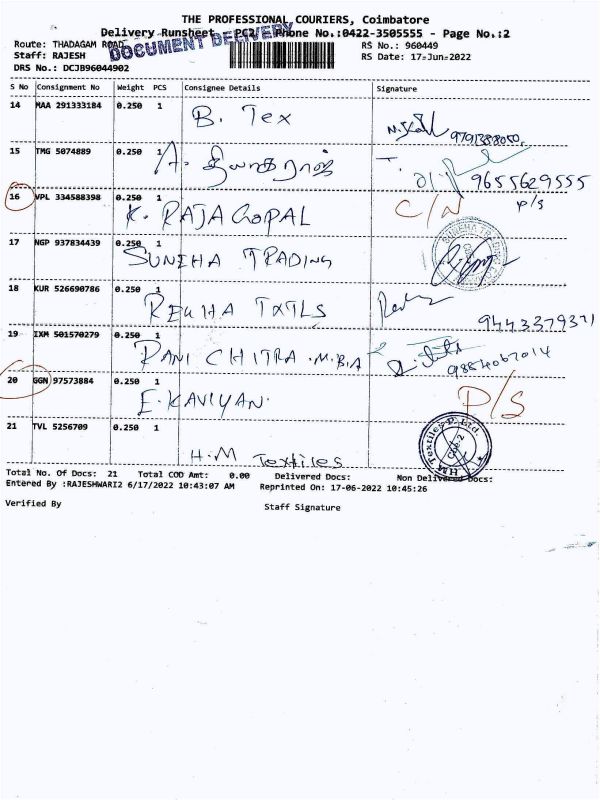 THE PROFESSIONAL COURIERS, Coimbatore
Delivery Runsheet - PC2/ Phone No.:0422-3505555 - Page No.:2
DOCUMENT DELIVERY
Route: THADAGAM ROAD
RS No.: 960449
Staff: RAJESH
RS Date: 17-Jun-2022
DRS No.: DCJB96044902
S No Consignment No Weight PCS Consignee Details Signature
14 MAA 291333184 0.250 1 B. Tex 9791388050
15 TMG 5074889 0.250 1 A. தியாகராஜ் 9655629555
P/S
16 VPL 334588398 0.250 1 K. RAJA GOPAL C/N
17 NGP 937834439 0.250 1 SUNEHA TRADING
18 KUR 526690786 0.250 1 REKHA TXTLS 9443379371
19 IXM 501570279 0.250 1 RANI CHITRA .M.B.A 9854067014
20 GGN 97573884 0.250 1 E.KAVIYAN. P/S
21 TVL 5256709 0.250 1 H.M Textiles HM Textiles P. Ltd. Cbe-2
Total No. Of Docs: 21 Total COD Amt: 0.00 Delivered Docs: Non Delivered Docs:
Entered By :RAJESHWARI2 6/17/2022 10:43:07 AM Reprinted On: 17-06-2022 10:45:26
Verified By Staff Signature